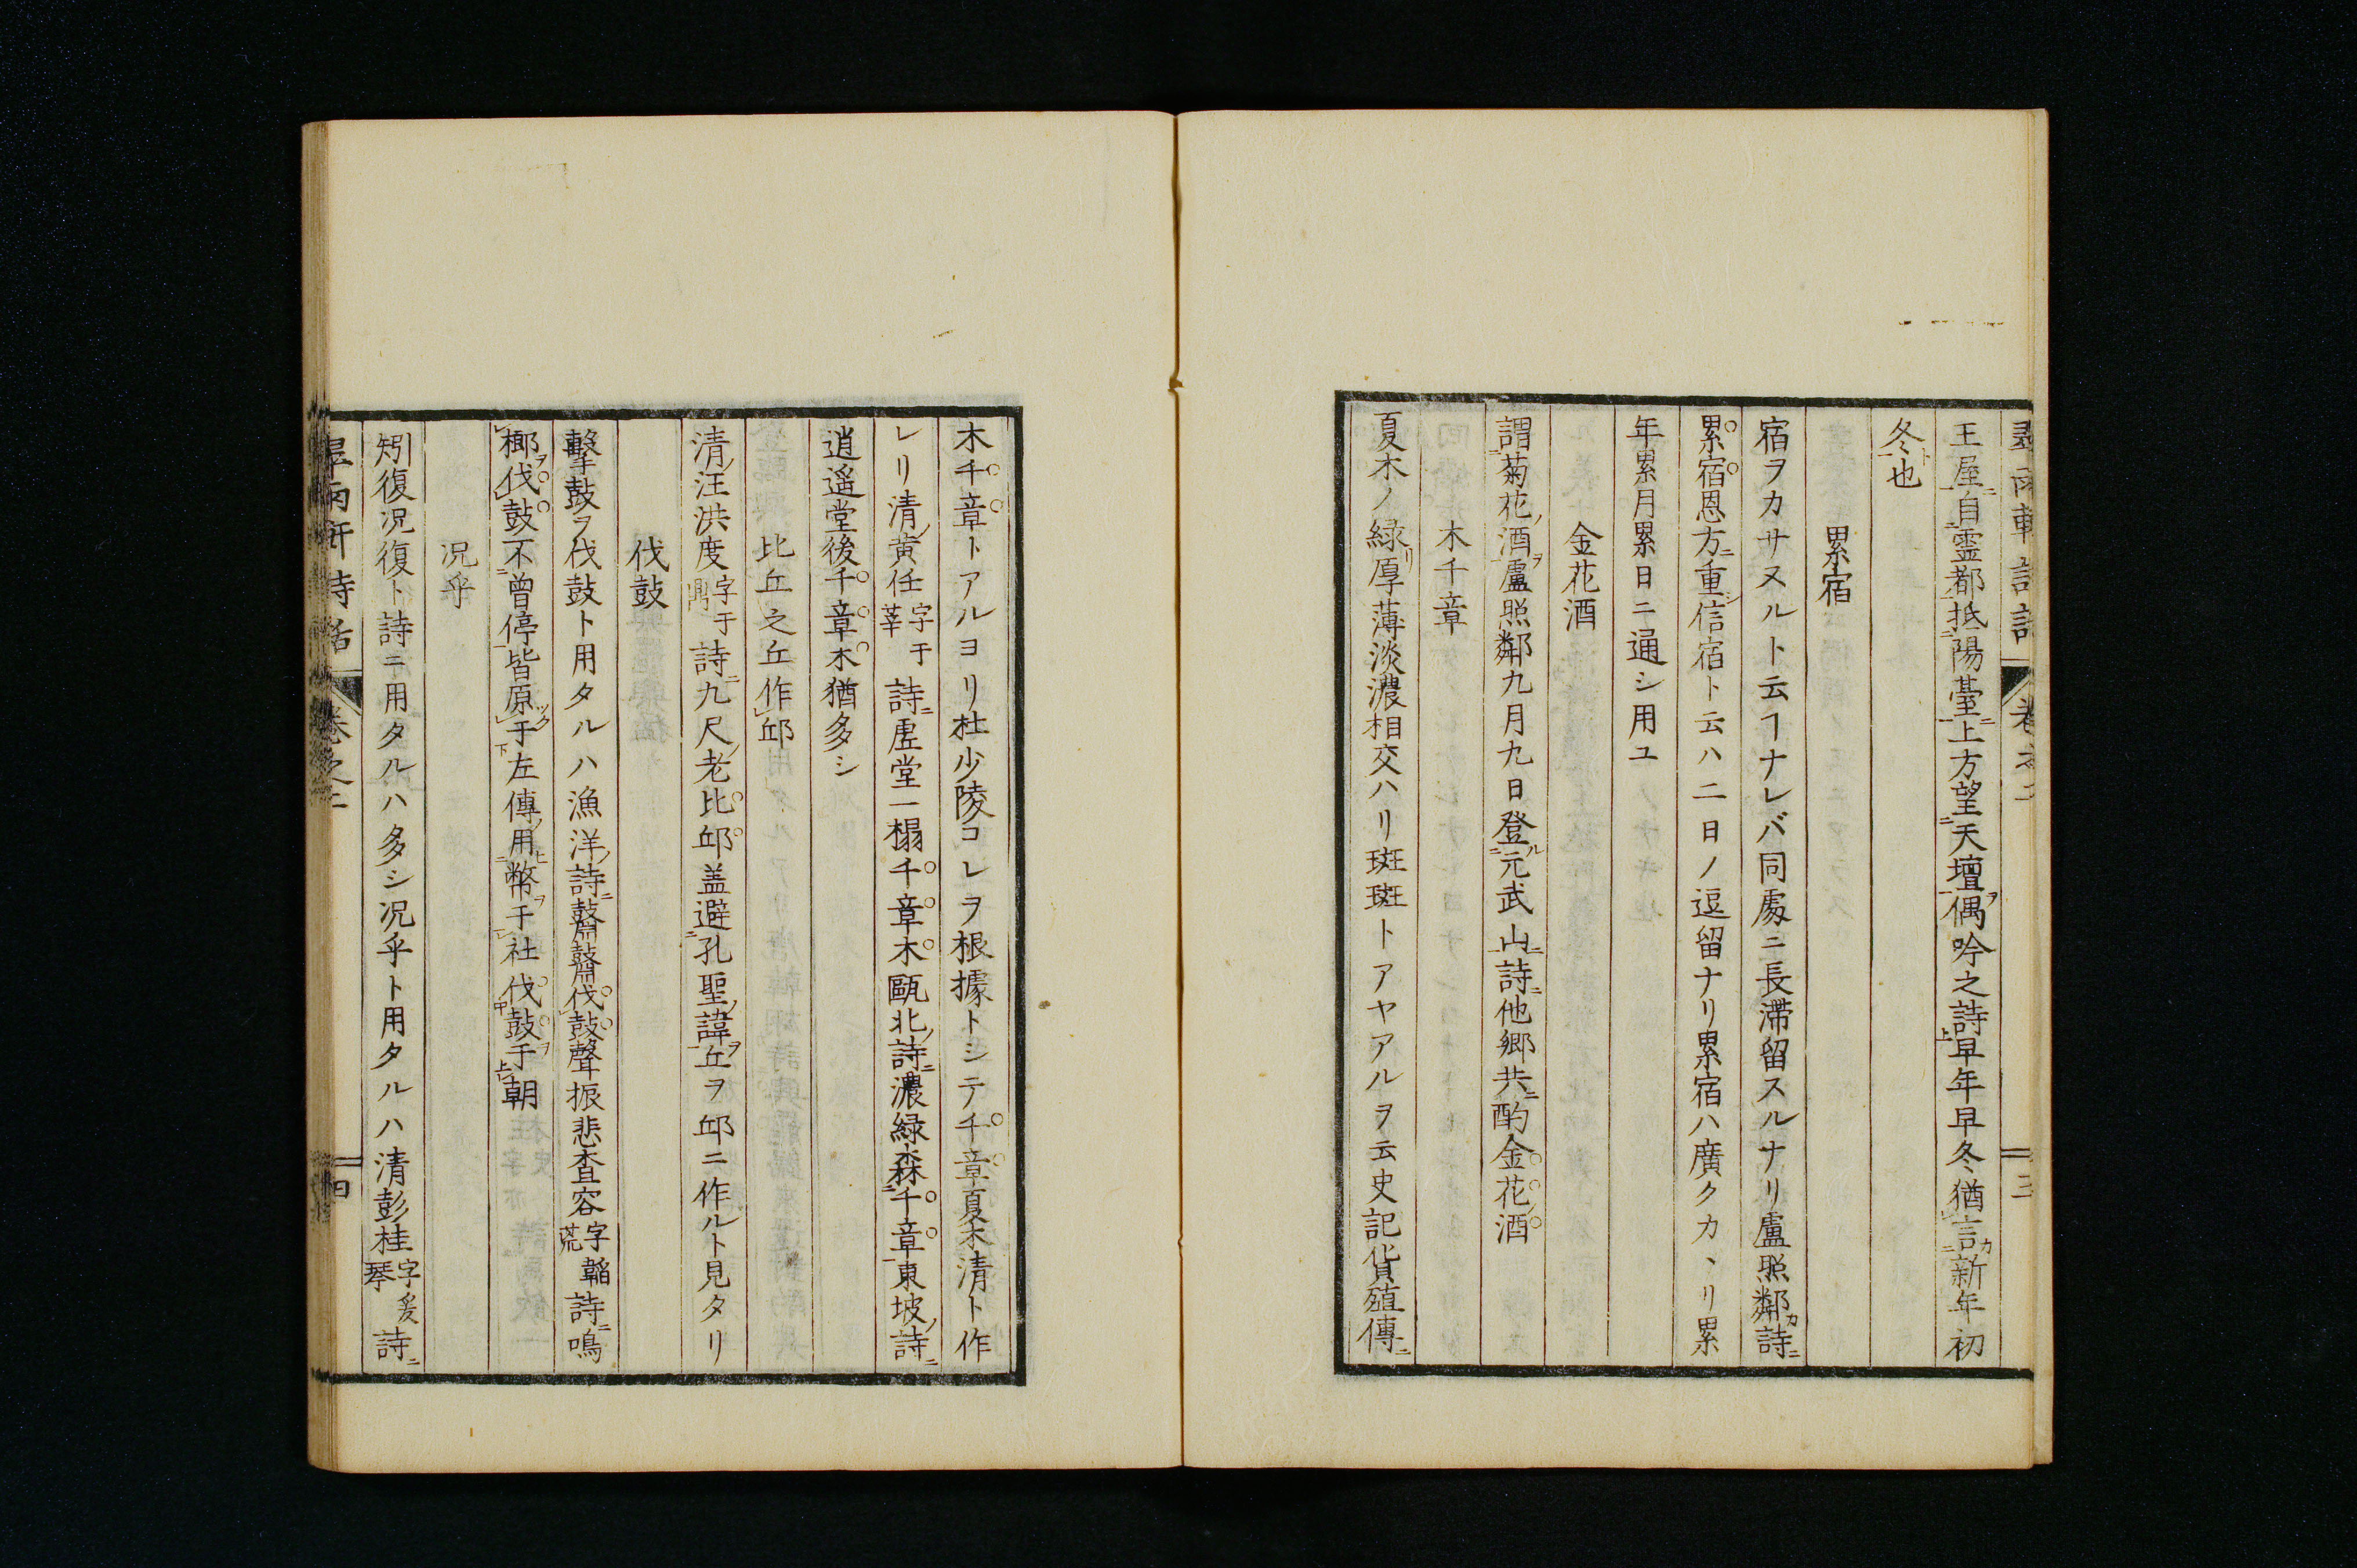 王屋自霊都抵陽臺上方望天壇偶吟之詩早年早冬猶言新年初
冬也
累宿
宿ヲカサヌルト云ヿナレバ同處ニ長滞留スルナリ盧照鄰カ詩ニ
累宿恩方重信宿ト云ハ二日ノ逗留ナリ累宿ハ廣クカヽリ累
年累月累日ニ通シ用ユ
金花酒
謂菊花ノ酒盧照鄰九月九日登元武山詩ニ他郷共酌金花酒
木千章
夏木ノ緑リ厚薄淡濃相交ハリ斑斑トアヤアルヲ云史記貨殖傳ニ
木千章トアルヨリ杜少陵コレヲ根據トシテ千章夏木清ト作
レリ清ノ黄任字于莘詩ニ虚堂一榻千章木甌北ノ詩ニ濃緑森千章東坡ノ詩ニ
逍遥堂後千章木猶多シ
比丘之丘作邱
清ノ汪洪度字于鼎詩ニ九尺ノ老比邱盖避孔聖ノ諱丘ヲ邱ニ作ルト見タリ
伐鼓
擊鼓ヲ伐鼓ト用タルハ漁洋ノ詩ニ鼘鼘伐鼓聲振悲査容字韜荒詩ニ鳴
榔伐鼓不曾停皆原ツク于左傳ノ用幣于社伐鼓于朝
况乎
矧復况復ト詩ニ用タルハ多シ况乎ト用タルハ清彭桂字爰琴詩ニ
卷之二